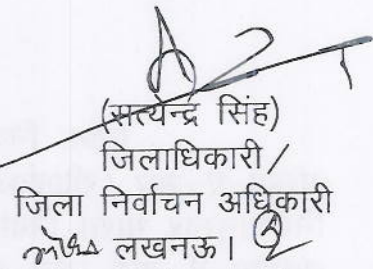 (सत्येन्द्र सिंह)
जिलाधिकारी /
जिला निर्वाचन अधिकारी
लखनऊ।